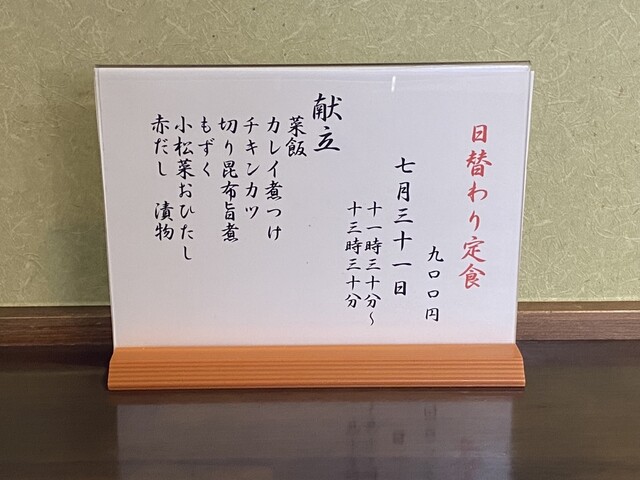 日替わり定食
九〇〇円
七月三十一日
十一時三十分～
十三時三十分
献立
菜飯
カレイ煮つけ
チキンカツ
切り昆布旨煮
もずく
小松菜おひたし
赤だし　漬物